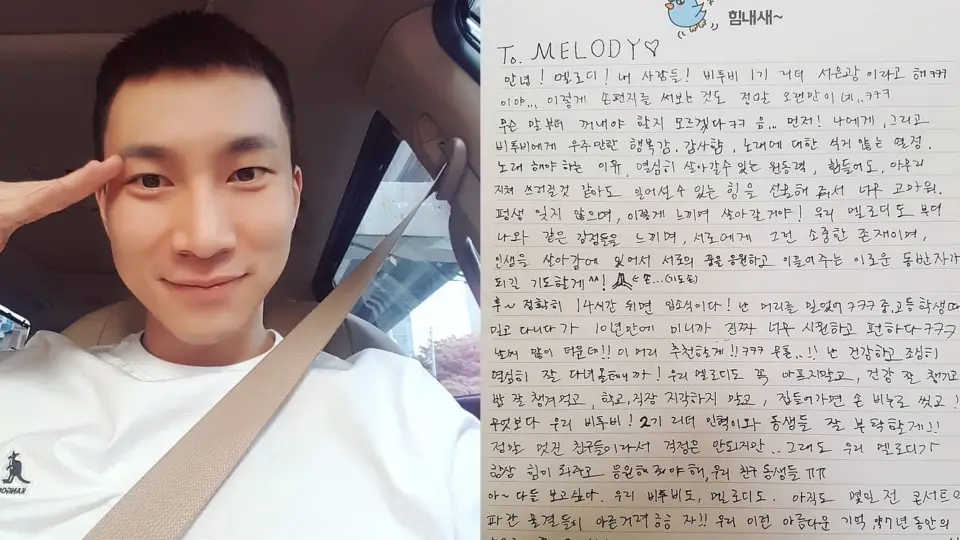 힘내새~
To. MELODY♡
안녕! 멜로디! 내 사람들! 비투비 1기 리더 서은광 이라고 해 ㅋㅋ
이야... 이렇게 손편지를 써보는 것도 정말 오랜만이네..ㅋㅋㅋ
무슨 말부터 꺼내야 할지 모르겠다ㅋㅋ 음... 먼저! 나에게, 그리고
비투비에게 우주만한 행복감, 감사함, 노래에 대한 식지 않는 열정,
노래 해야하는 이유, 열심히 살아갈수 있는 원동력, 힘들어도, 아무리
지쳐 쓰러질것 같아도 일어설수 있는 힘을 선물해 줘서 너무 고마워.
평생 잊지 않으며, 이렇게 느끼며 살아갈거야! 우리 멜로디도 부디
나와 같은 감정들을 느끼며, 서로에게 그런 소중한 존재이며,
인생을 살아감에 있어서 서로의 꿈을 응원하고 이끌어주는 이로운 동반자가
되길 기도할게^^! ←손...(기도손)
후~ 정확히 14시간 뒤면 입소식이다! 난 머리를 밀었어ㅋㅋㅋ중,고등학생때
밀고 다니다가 10년만에 미니까 진짜 너무 시원하고 편하다ㅋㅋㅋ
날씨 많이 더운데!! 이 머리 추천할게!! ㅋㅋㅋ 우톡..!! 난 건강하고 조심히
열심히 잘 다녀올테니까! 우리 멜로디도 꼭 아프지말고, 건강 잘 챙기고
밥 잘 챙겨먹고, 학교,직장 지각하지 말고, 집들어가면 손 비누로 씻고!
무엇보다 우리 비투비! 2기 리더 민혁이와 동생들 잘 부탁할게!!
정말 멋진 친구들이라서 걱정은 안되지만.. 그래도 우리 멜로디가
항상 힘이 되주고 응원해 줘야해, 우리 친구 동생들 ㅠㅠ
아~ 다들 보고싶다. 우리 비투비도, 멜로디도. 아직도 몇일 전 콘서트의
파란 물결들이 아른거려 흠흠 자!! 우리 이런 아름다운 기억, 약7년 동안의
KANGOL